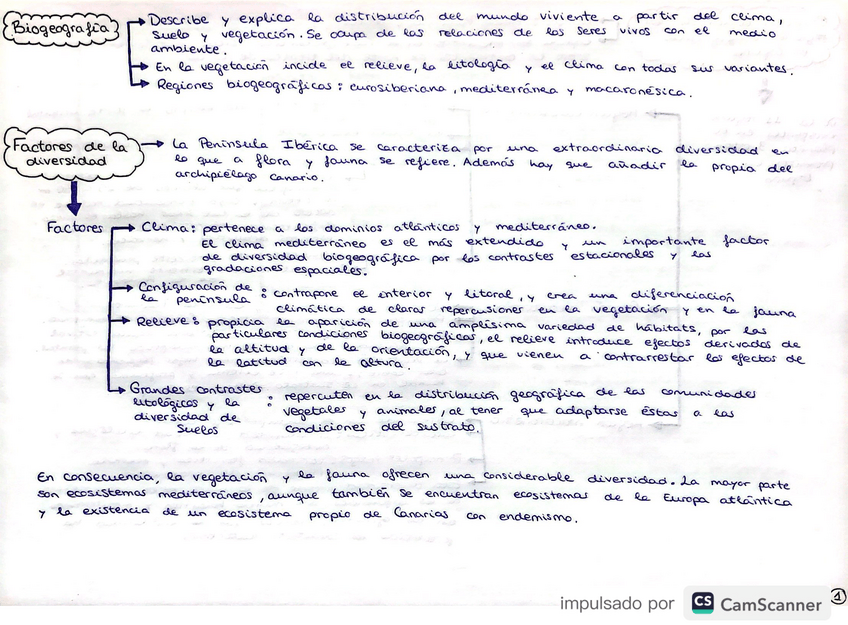 Biogeografía
Describe y explica la distribución del mundo viviente a partir del clima,
suelo y vegetación. Se ocupa de las relaciones de los seres vivos con el medio
ambiente.
En la vegetación incide el relieve, la litología y el clima con todas sus variantes.
Regiones biogeográficas: eurosiberiana, mediterránea y macaronésica.
Factores de la
diversidad
La Península Ibérica se caracteriza por una extraordinaria diversidad en
lo que a flora y fauna se refiere. Además hay que añadir la propia del
archipiélago canario.
Factores
Clima: pertenece a los dominios atlánticos y mediterráneo.
El clima mediterráneo es el más extendido y un importante factor
de diversidad biogeográfica por los contrastes estacionales y las
gradaciones espaciales.
Configuración de
la península : contrapone el interior y litoral, y crea una diferenciación
climática de claras repercusiones en la vegetación y en la fauna
Relieve: propicia la aparición de una amplísima variedad de hábitats, por las
particulares condiciones biogeográficas, el relieve introduce efectos derivados de
la altitud y de la orientación, y que vienen a contrarrestar los efectos de
la latitud con la altura.
Grandes contrastes
litológicos y la
diversidad de
suelos
: repercuten en la distribución geográfica de las comunidades
vegetales y animales, al tener que adaptarse éstas a las
condiciones del sustrato.
En consecuencia, la vegetación y la fauna ofrecen una considerable diversidad. La mayor parte
son ecosistemas mediterráneos, aunque también se encuentran ecosistemas de la Europa atlántica
y la existencia de un ecosistema propio de Canarias con endemismo.
impulsado por CS CamScanner
1